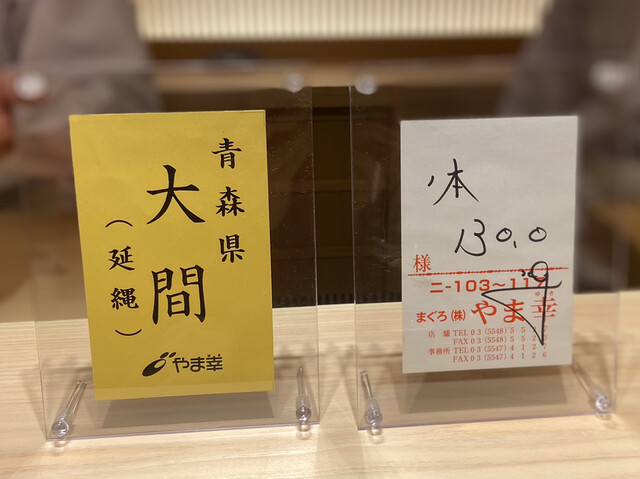 青森県
大間
(延縄)
やま幸
本
130.0
様
ニ-103~117
まぐろ(株)やま幸
店舗 TEL03(5548)5
FAX03(5548)5
事務所 TEL03(5547)412
FAX03(5547)4126